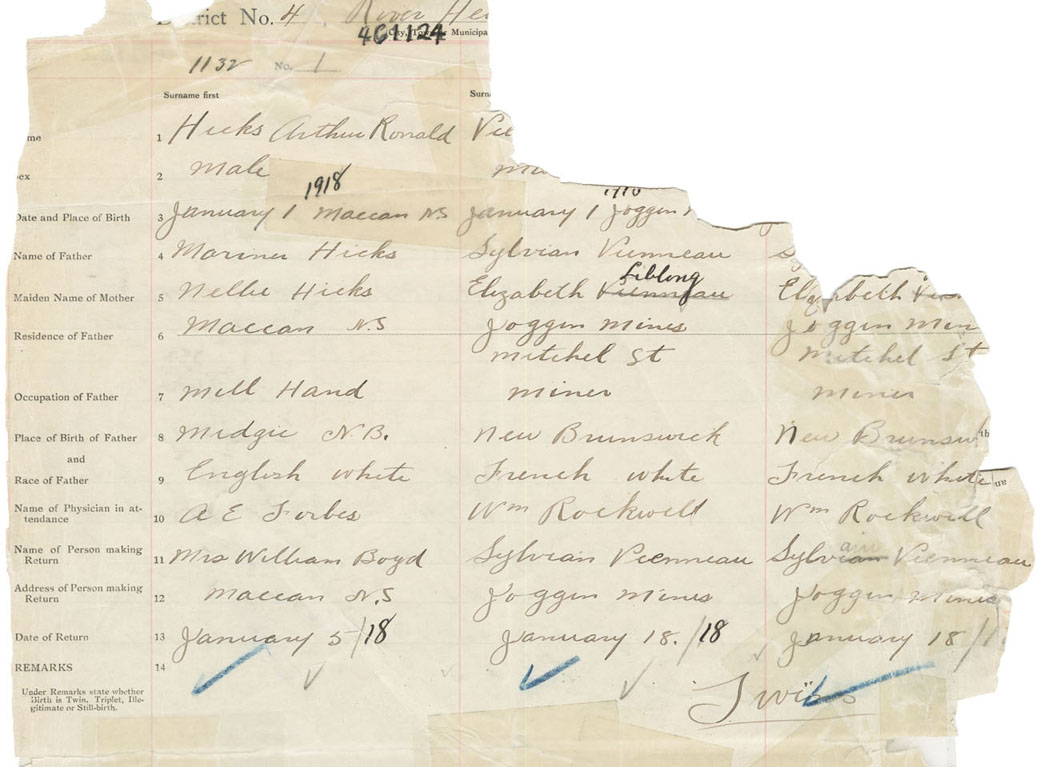 District No. 4, River He
461124
City, Town or Municipa
1132 No. 1
Surname first Surn
me 1 Hicks Arthur Ronald Vie
ex 2 Male
1918
Date and Place of Birth 3 January 1 Maccan NS January 1 Joggin
Name of Father 4 Mariner Hicks Sylvian Vienneau Sy
Liblong
Maiden Name of Mother 5 Nellie Hicks Elizabeth Vienneau Elizabeth
Residence of Father 6 Maccan N.S Joggin Mines Joggin Min
Mitchel St Mitchel St
Occupation of Father 7 Mill Hand Miner Miner
Place of Birth of Father 8 Midgic N.B. New Brunswick New Brunsw
and
Race of Father 9 English White French White French White
Name of Physician in at-
tendance 10 A E Forbes Wm Rockwell Wm Rockwell
Name of Person making
Return 11 Mrs William Boyd Sylvian Vienneau Sylvian Vienneau
Address of Person making
Return 12 Maccan N.S Joggin Mines Joggin Mines
Date of Return 13 January 5/18 January 18./18 January 18/1
REMARKS 14
Under Remarks state whether
Birth is Twin, Triplet, Ille-
gitimate or Still-birth.
Twins